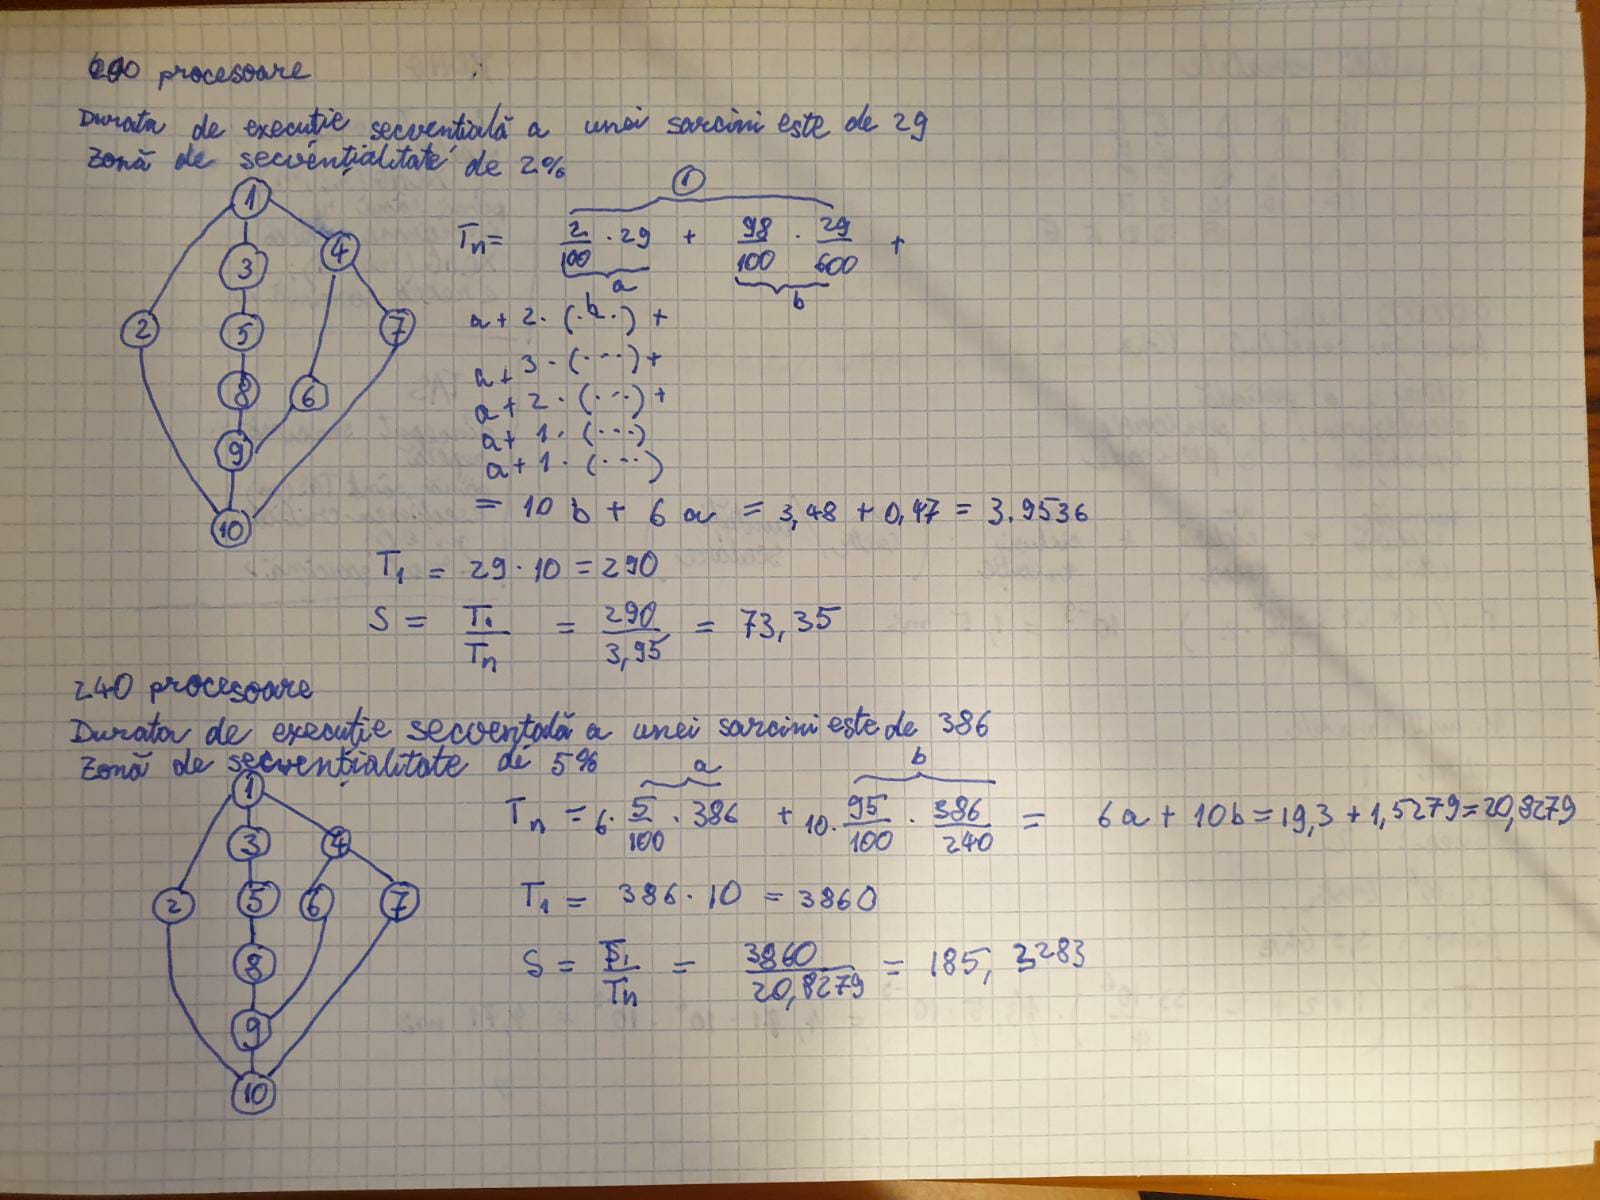 600 procesoare
Durata de execuție secvențială a unei sarcini este de 29
Zonă de secvențialitate de 2%
1
3
4
2
5
7
8
6
9
10
1
Tn = 2/100 · 29 + 98/100 · 29/600 +
a
b
a + 2 · (· b ·) +
a + 3 · (···) +
a + 2 · (···) +
a + 1 · (···)
a + 1 · (···)
= 10 b + 6 a = 3,48 + 0,47 = 3.9536
T1 = 29 · 10 = 290
S = T1/Tn = 290/3,95 = 73,35
240 procesoare
Durata de execuție secvențală a unei sarcini este de 386
Zonă de secvențialitate de 5%
1
3
4
2
5
6
7
8
9
10
a
b
Tn = 6 · 5/100 · 386 + 10 · 95/100 · 386/240 = 6a + 10b = 19,3 + 1,5279 = 20,8279
T1 = 386 · 10 = 3860
S = T1/Tn = 3860/20,8279 = 185,3283